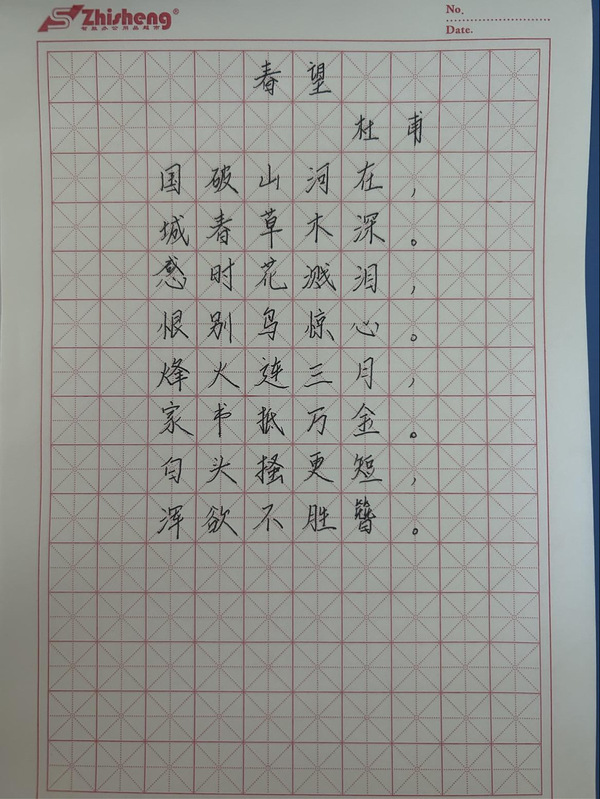 Zhisheng®
No.
Date.
春望
杜甫
国破山河在，
城春草木深。
感时花溅泪，
恨别鸟惊心。
烽火连三月，
家书抵万金。
白头搔更短，
浑欲不胜簪。